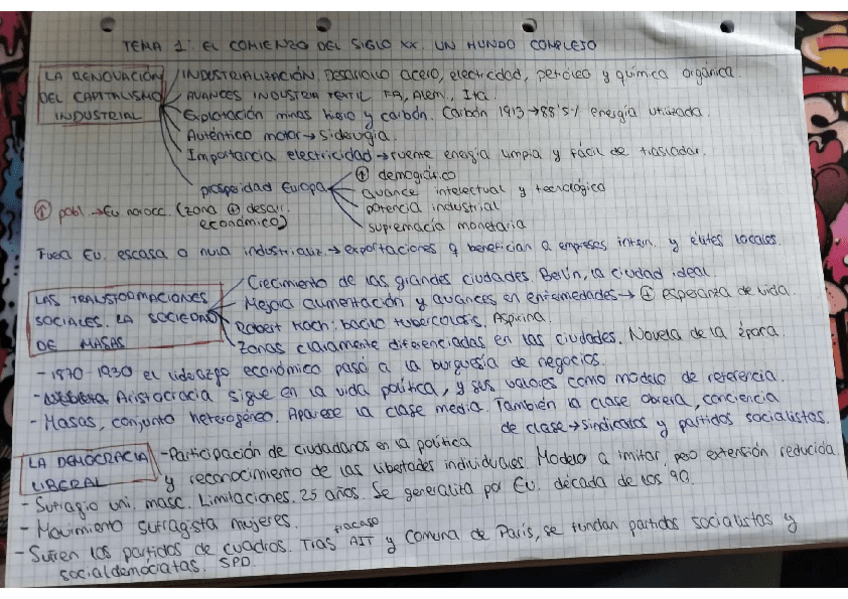 TEMA 1: EL COMIENZO DEL SIGLO XX. UN MUNDO COMPLEJO
LA RENOVACIÓN DEL CAPITALISMO INDUSTRIAL
INDUSTRIALIZACIÓN. Desarrollo acero, electricidad, petróleo y química orgánica.
AVANCES INDUSTRIA TEXTIL FR, Alem., Ita.
Explotación minas hierro y carbón. Carbón 1913 → 88'5% energía utilizada.
Auténtico motor → siderurgia.
Importancia electricidad → fuente energía limpia y fácil de trasladar.
prosperidad Europa
↑ demográfico
avance intelectual y tecnológico
potencia industrial
supremacía monetaria
↑ pobl. → Eu norocc. (zona ⊕ desarr. económico)
Fuera Eu. escasa o nula industrializ. → exportaciones q benefician a empresas intern. y élites locales.
LAS TRANSFORMACIONES SOCIALES. LA SOCIEDAD DE MASAS
Crecimiento de las grandes ciudades. Berlín, la ciudad ideal.
Mejora alimentación y avances en enfermedades → ⊕ esperanza de vida.
Robert Koch: bacilo tuberculosis. Aspirina.
Zonas claramente diferenciadas en las ciudades. Novela de la época.
- 1870-1930 el liderazgo económico pasó a la burguesía de negocios.
- Aristocracia sigue en la vida política, y sus valores como modelo de referencia.
- Masas, conjunto heterogéneo. Aparece la clase media. También la clase obrera, conciencia
de clase → sindicatos y partidos socialistas.
LA DEMOCRACIA LIBERAL
- Participación de ciudadanos en la política
y reconocimiento de las libertades individuales. Modelo a imitar, pero extensión reducida
- Sufragio uni. masc. Limitaciones. 25 años. Se generaliza por Eu. década de los 90.
- Movimiento sufragista mujeres.
- Surgen los partidos de cuadros. Tras fracaso AIT y Comuna de París, se fundan partidos socialistas y
socialdemócratas. SPD.